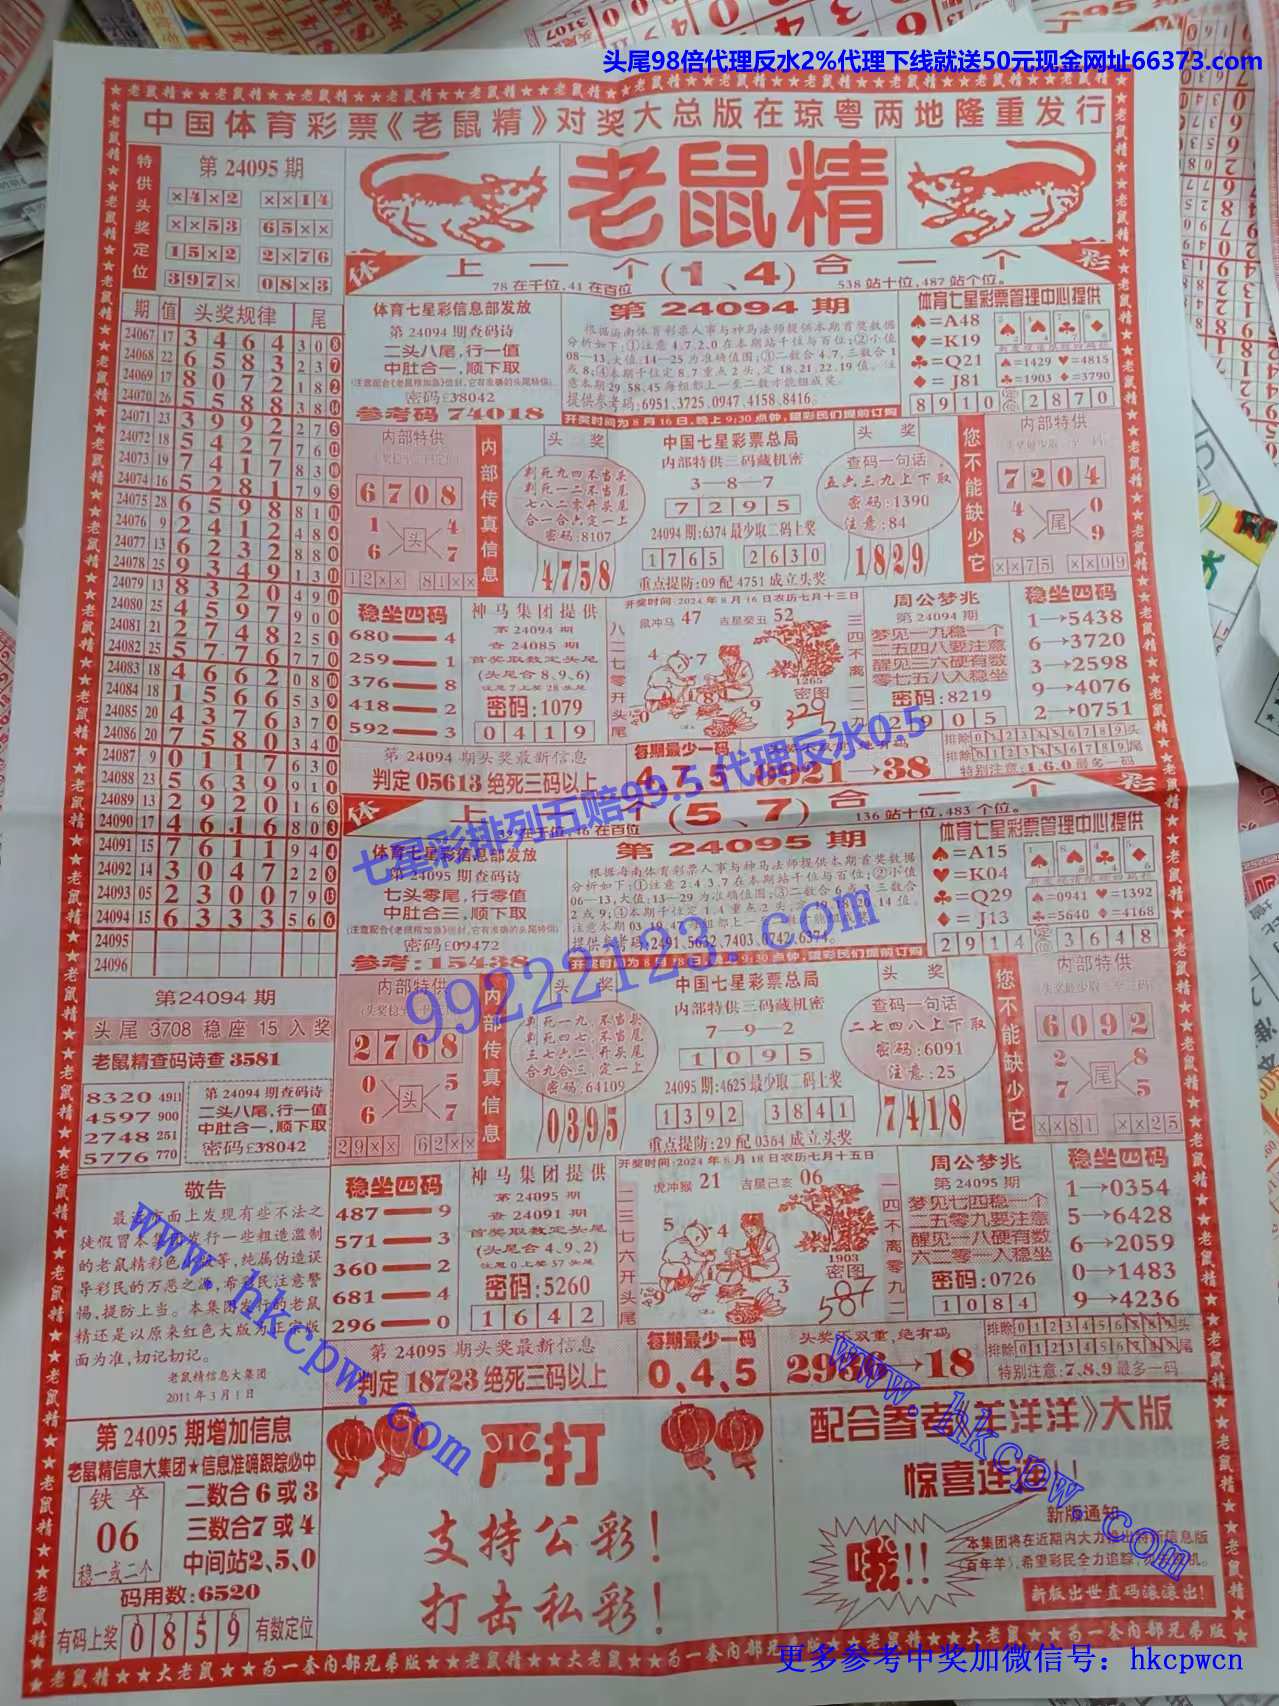 头尾98倍代理反水2%代理下线就送50元现金网址66373.com
中国体育彩票《老鼠精》对奖大总版在琼粤两地隆重发行
特供头奖定位
第24095期
×4×2 ××14
××53 65××
15×2 2×76
397× 08×3
老鼠精
体
上一个(1、4)合一个
彩
78在千位,41在百位
538站十位,487站个位。
期 值 头奖规律 尾
24067 17 3464 308
24068 22 6583 237
24069 17 8072 182
24070 26 5588 38
24071 23 3992 275
24072 18 5427 76
24073 19 7417 83
24074 16 5281 795
24075 28 6598 81
24076 9 2412 484
24077 13 6232 880
24078 25 9349 13
24079 13 8320 49
24080 25 4597 900
24081 21 2748 251
24082 25 5776 770
24083 18 4662 08
24084 18 1566 539
24085 20 4376 374
24086 20 7580 34
24087 9 0117 630
24088 23 5639 991
24089 13 2920 168
24090 17 4616 803
24091 15 7611 944
24092 14 3047 228
24093 05 2300 79
24094 15 6333 566
24095
24096
体育七星彩信息部发放
第24094期查码诗
二头八尾,行一值
中肚合一,顺下取
密码£38042
参考码74018
第24094期
根据海南体育彩票人事与神马法师提供本期首奖数据
分析如下:①注意4.7.2.0在本期站千位与百位;②小值
08—13,大值:14—25为准确值图;③二数合4.7,三数合1
或8;④本期千位定8.7重点2头,定18.21.22.19值。注
意本期29.58.45每组都上一至二数才能组成奖。
提供参考码:6951.3725.0947.4158.8416。
开奖时间为8月16日,晚上9:30点钟,望彩民们提前订购
体育七星彩票管理中心提供
♠=A48
♥=K19
♣=Q21
♦=J81
♠=1429 ♥=4815
♣=1903 ♦=3790
8910 2870
内部特供
6708
1 4
头
6 7
12×× 81××
内部传真信息
头奖
判死九四不当头
判死一二不当尾
七八二零开头尾
合一合六定一上
密码:8107
4758
中国七星彩票总局
内部特供三码藏机密
3—8—7
7295
24094期:6374最少取二码上奖
1765 2630
重点提防:09配4751成立头奖
头奖
查码一句话
五六三九上下取
密码:1390
注意:84
1829
您不能缺少它
内部特供
7204
4 0
尾
8 9
××75 ××09
稳坐四码
680—4
259—1
376—8
418—2
592—3
神马集团提供
第24094期
查24085期
首奖取数定头尾
(头尾合8、9、6)
注意7上奖28头尾
密码:1079
0419
开奖时间:2024年8月16日农历七月十三日
鼠冲马47 吉星癸丑52
八二七零开头尾
三四不离
1265
密图
周公梦兆
第24094期
梦见一九稳一个
二五四八要注意
醒见三六硬有数
零七五八入稳坐
密码:8219
2905
稳坐四码
1→5438
6→3720
3→2598
9→4076
2→0751
第24094期头奖最新信息
判定05613绝死三码以上
每期最少一码
4、7、5
→38
排除0123456789头
排除0123456789尾
特别注意:1.6.0最多一码
七星彩排列五赔99.5代理反水0.5
体
(5、7)合一个
彩
136站十位,483个位。
体育七星彩信息部发放
第24095期查码诗
七头零尾,行零值
中肚合三,顺下取
密码£09472
参考:15438
第24095期
根据海南体育彩票人事与神马法师提供本期首奖数据
提供参考码:2491.5632.7403.0742.6374。
开奖时间为8月18日,晚上9:30点钟,望彩民们提前订购
体育七星彩票管理中心提供
♠=A15
♥=K04
♣=Q29
♦=J13
♠=0941 ♥=1392
♣=5640 ♦=4168
2914 3648
99222123.com
内部特供
2768
0 5
头
6 7
29×× 62××
内部传真信息
判死一九,不当头
判死四七,不当尾
三七六二,开头尾
合九合三,定一上
密码:64109
0395
中国七星彩票总局
内部特供三码藏机密
7—9—2
1095
24095期:4625最少取二码上奖
1392 3841
重点提防:29配0364成立头奖
头奖
查码一句话
二七四八上下取
密码:6091
注意:25
7418
您不能缺少它
内部特供
6092
2 8
尾
7 5
××81 ××25
稳坐四码
487—9
571—3
360—2
681—4
296—0
神马集团提供
第24095期
查24091期
首奖取数定头尾
(头尾合4、9、2)
注意0上奖37头尾
密码:5260
1642
开奖时间:2024年8月18日农历七月十五日
虎冲猴21 吉星己亥06
二三七六开头尾
一四不离零九二
1903
密图
周公梦兆
第24095期
梦见七四稳一个
二五零九要注意
醒见一八硬有数
六二零一入稳坐
密码:0726
1084
稳坐四码
1→0354
5→6428
6→2059
0→1483
9→4236
第24095期头奖最新信息
判定18723绝死三码以上
每期最少一码
0、4、5
头奖不双重,绝有码
2936→18
排除0123456789头
排除0123456789尾
特别注意:7.8.9最多一码
第24094期
头尾3708稳座15入奖
老鼠精查码诗查3581
8320 4911
4597 900
2748 251
5776 770
第24094期查码诗
二头八尾,行一值
中肚合一,顺下取
密码£38042
敬告
导彩民的万恶之源,希彩民注意警
惕,提防上当。本集团发行的老鼠
精还是以原来红色大版为正宗版
面为准,切记切记。
老鼠精信息大集团
2011年3月1日
www.hkcpw.com
第24095期增加信息
老鼠精信息大集团★信息准确跟踪必中
铁卒
06
稳一或二个
二数合6或3
三数合7或4
中间站2、5、0
码用数:6520
有码上奖0859有数定位
严打
支持公彩!
打击私彩!
配合参考《羊洋洋》大版
惊喜连连!!
哦!!
新版通知
《百年羊》,希望彩民全力追踪,勿失良机。
新版出世直码滚滚出!
www.hkcpw.com
老鼠精★★大老鼠★★为一套内部兄弟版★★老鼠精★★大老鼠★★为一套内部兄弟版
更多参考中奖加微信号: hkcpwcn